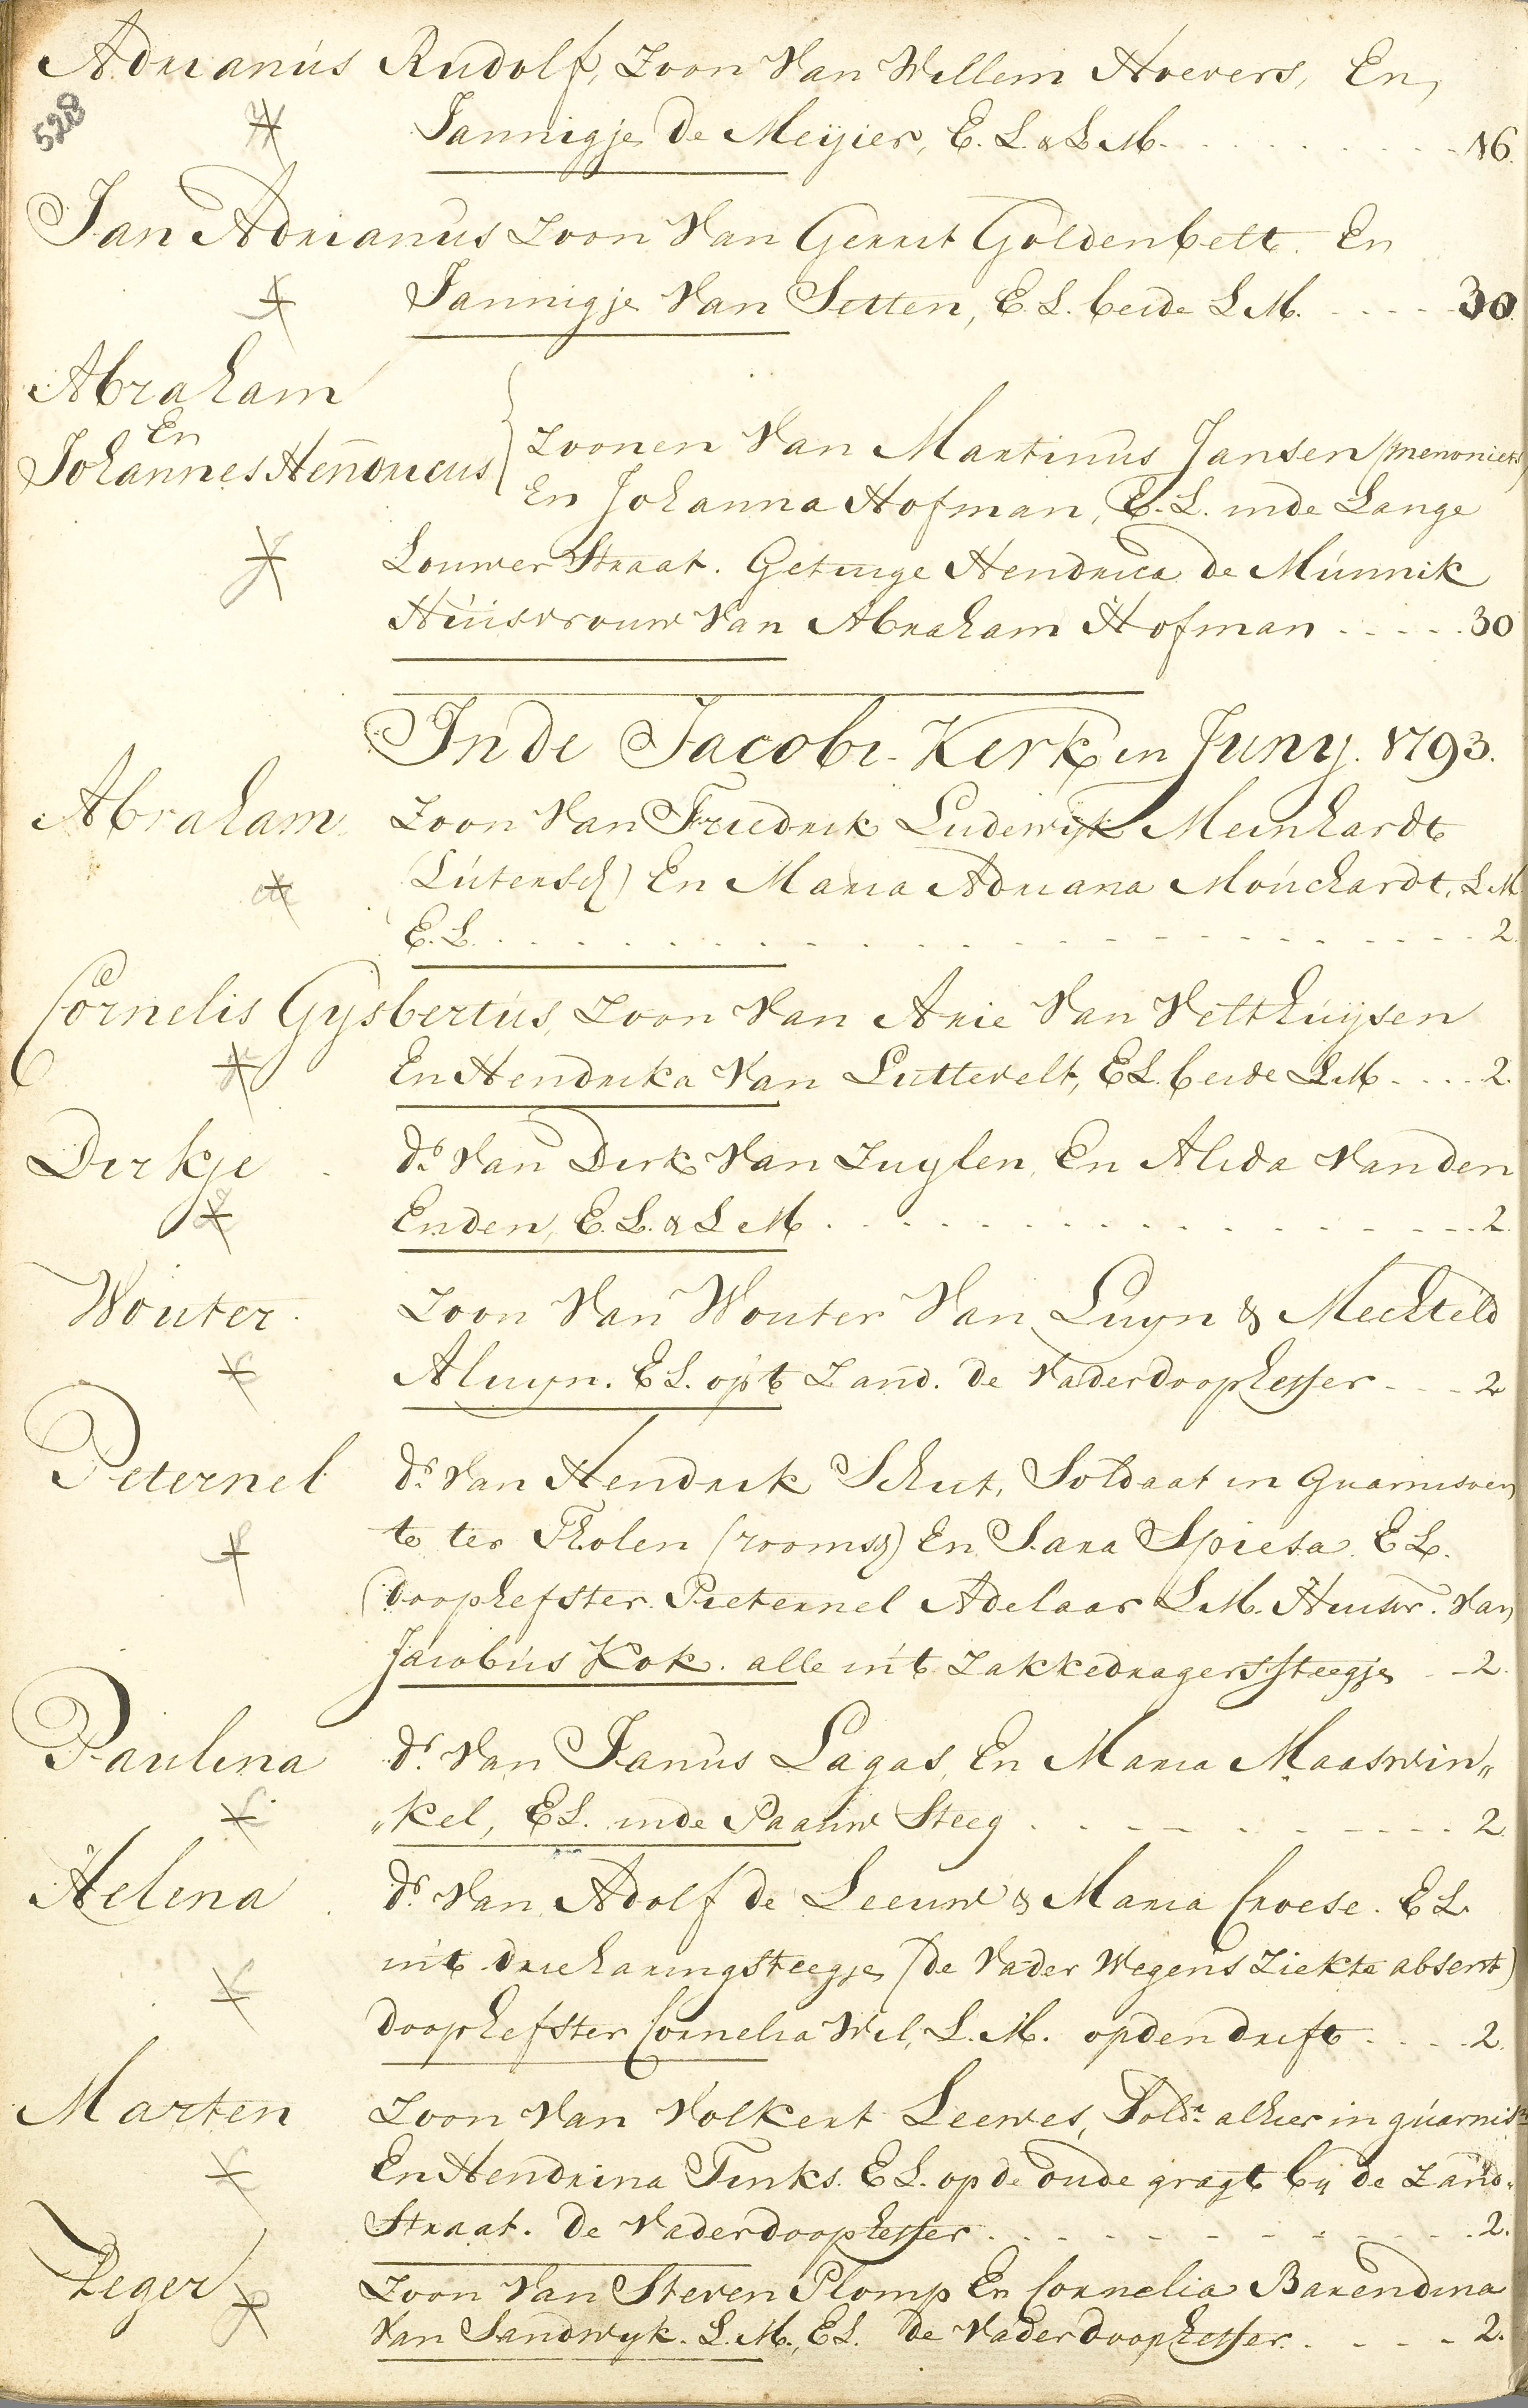 Adrianus Rudolf, Zoon Van Willem Hoevers, En,
528
Jannigje De Meyier, E. L. & L M. 16.
Jan Adrianus Zoon Van Gerrit Goldenbelt. En
Jannigje Van Setten, E. L. beide L M. 30.
Abraham
En
Johannes Hendricus
Zoonen Van Martinus Jansen (menoniets)
En Johanna Hofman, E. L. inde Lange
Louwer Straat. Getuige Hendrica de Munnik
Huisvrouw Van Abraham Hofman 30
In de Jacobi-Kerk in Juny. 1793.
Abraham Zoon Van Friedrik Ludewijk Meinhardt
(Lutersch) En Maria Adriana Mouchardt, L M
E. L. 2.
Cornelis Gysbertus, Zoon Van Arie Van Velthuijsen
En Hendrika Van Luttevelt, E L. beide L M 2.
Dirkje dr. Van Dirk Van Zuylen, En Alida Van den
Enden, E. L. & L M 2.
Wouter Zoon Van Wouter Van Luyn & Mechteld
Aluyn. E L. op't Zand. de Vader doopheffer 2
Peternel dr. Van Hendrik Schut, Soldaat in Guarnisoen
te ter Tholen (roomsch) En Sara Spiesa. E L.
doophefster Pieternel Adelaar L M. Huisvr. Van
Jacobus Kok. alle in't Zakkedragerssteegje 2.
Paulina dr. Van Janus Lagas, En Maria Maaswin„
„kel, E L. inde Paauw Steeg 2.
Helena dr. Van Adolf de Leeuw & Maria Croese. E L.
in't drieharingsteegje (de Vader Wegens Ziekte absent)
doophefster Cornelia Wel, L. M. op den drift 2.
Marten Zoon Van Volkert Leewes, Soldt. alhier in guarnisn
En Hendrina Tinks. E L. op de oude gragt bij de Zand„
Straat. de Vader doopheffer 2.
Zeger Zoon Van Steven Plomp En Cornelia Barendina
Van Sandwyk. L. M., E L. de Vader doopheffer. 2.